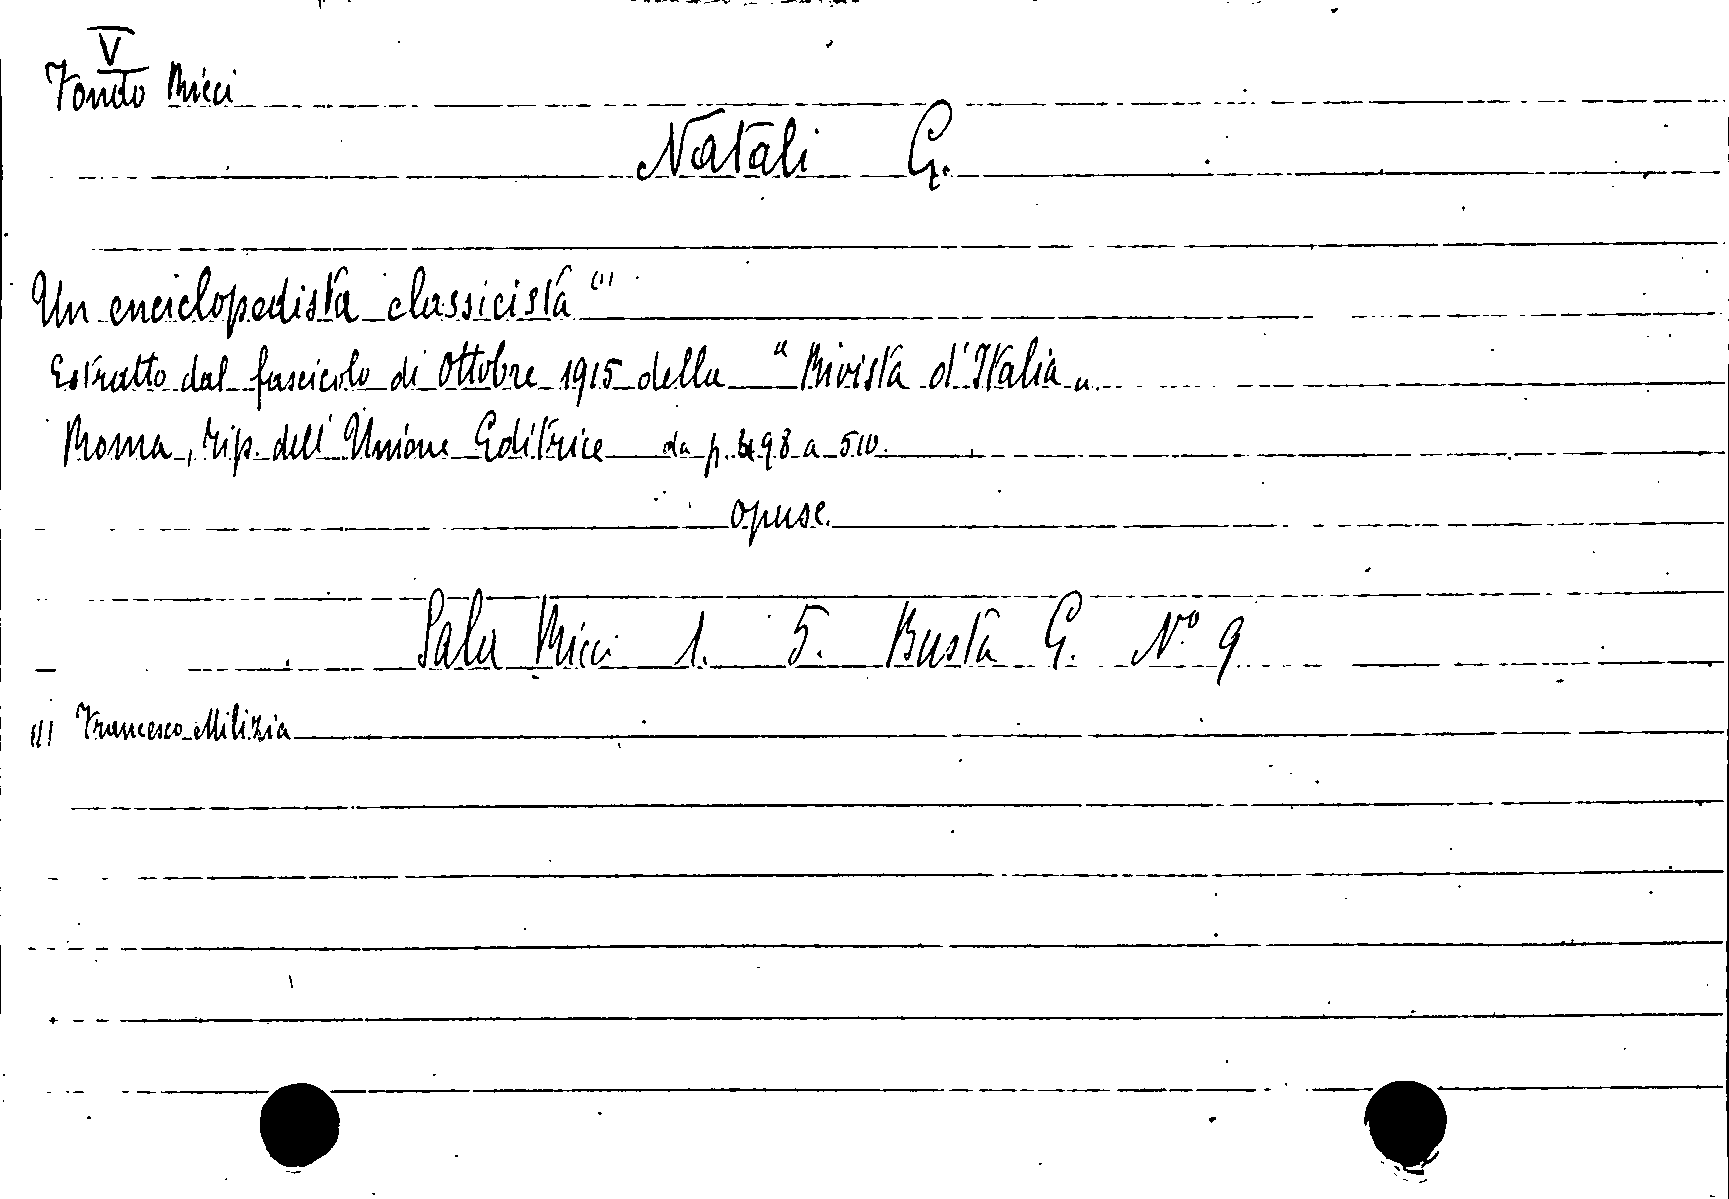 V
Fondo Ricci
Natali G.
Un enciclopedista classicista (1)
Estratto dal fascicolo di Ottobre 1915 della "Rivista d'Italia„
Roma, Tip. dell'Unione Editrice da p. 498 a 510.
opusc.
Sala Ricci 1. 5. Busta G. N° 9
(1) Francesco Milizia